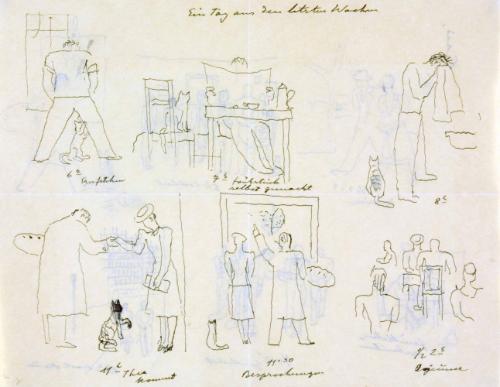 Ein Tag aus den letzten Wochen
6 Aufstehen
7 Frühstück
selbst gemacht
8
11 Thea
kommt
11.30
Besprechungen
1/2 2
Déjeuner